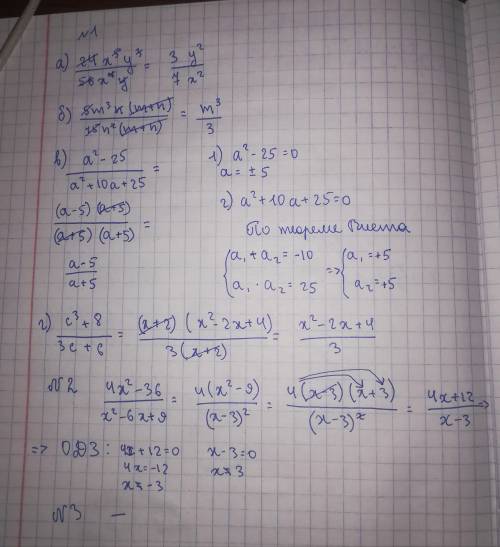 №1
а) 24x⁵y³/56x⁴y = 3 y²/7 x²
б) 8m³n(m+n)/15n²(m+n) = m³/3
в) a²-25/a²+10a+25 =
(a-5)(a+5)/(a+5)(a+5) =
a-5/a+5
1) a²-25=0
a=±5
2) a²+10a+25=0
По теореме Виета
{a₁+a₂=-10
a₁·a₂=25 => {a₁=+5
a₂=+5
г) c³+8/3c+6 = (x+2)(x²-2x+4)/3(x+2) = x²-2x+4/3
№2 4x²-36/x²-6x+9 = 4(x²-9)/(x-3)² = 4(x-3)(x+3)/(x-3)² = 4x+12/x-3 =>
=> ОДЗ: 4x+12=0 x-3=0
4x=-12 x=3
x=-3
№3 —